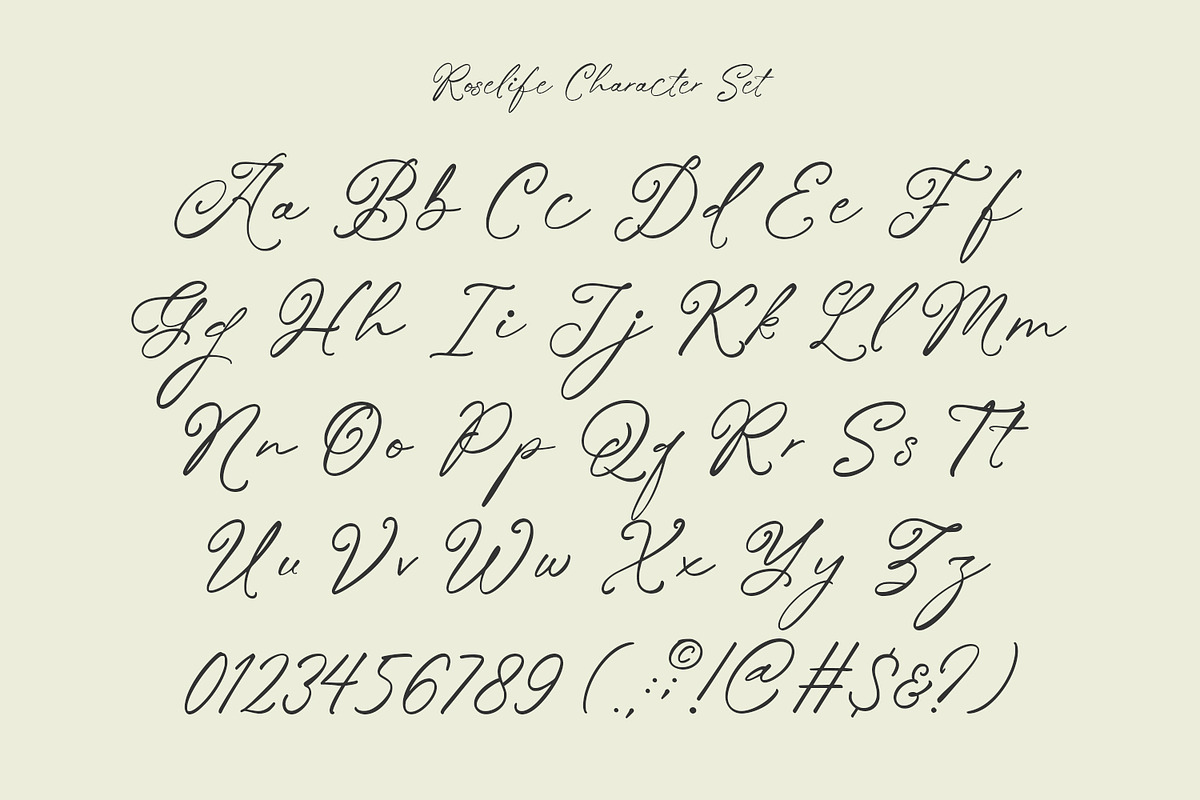 Roselife Character Set
Aa Bb Cc Dd Ee Ff
Gg Hh Ii Jj Kk Ll Mm
Nn Oo Pp Qq Rr Ss Tt
Uu Vv Ww Xx Yy Zz
0123456789 (.,:;©!@#$&?)